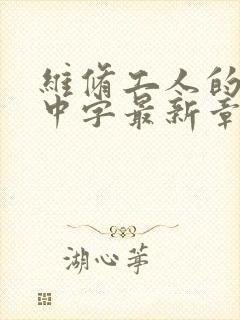 維脩工人的
中字最新章
湖心茅